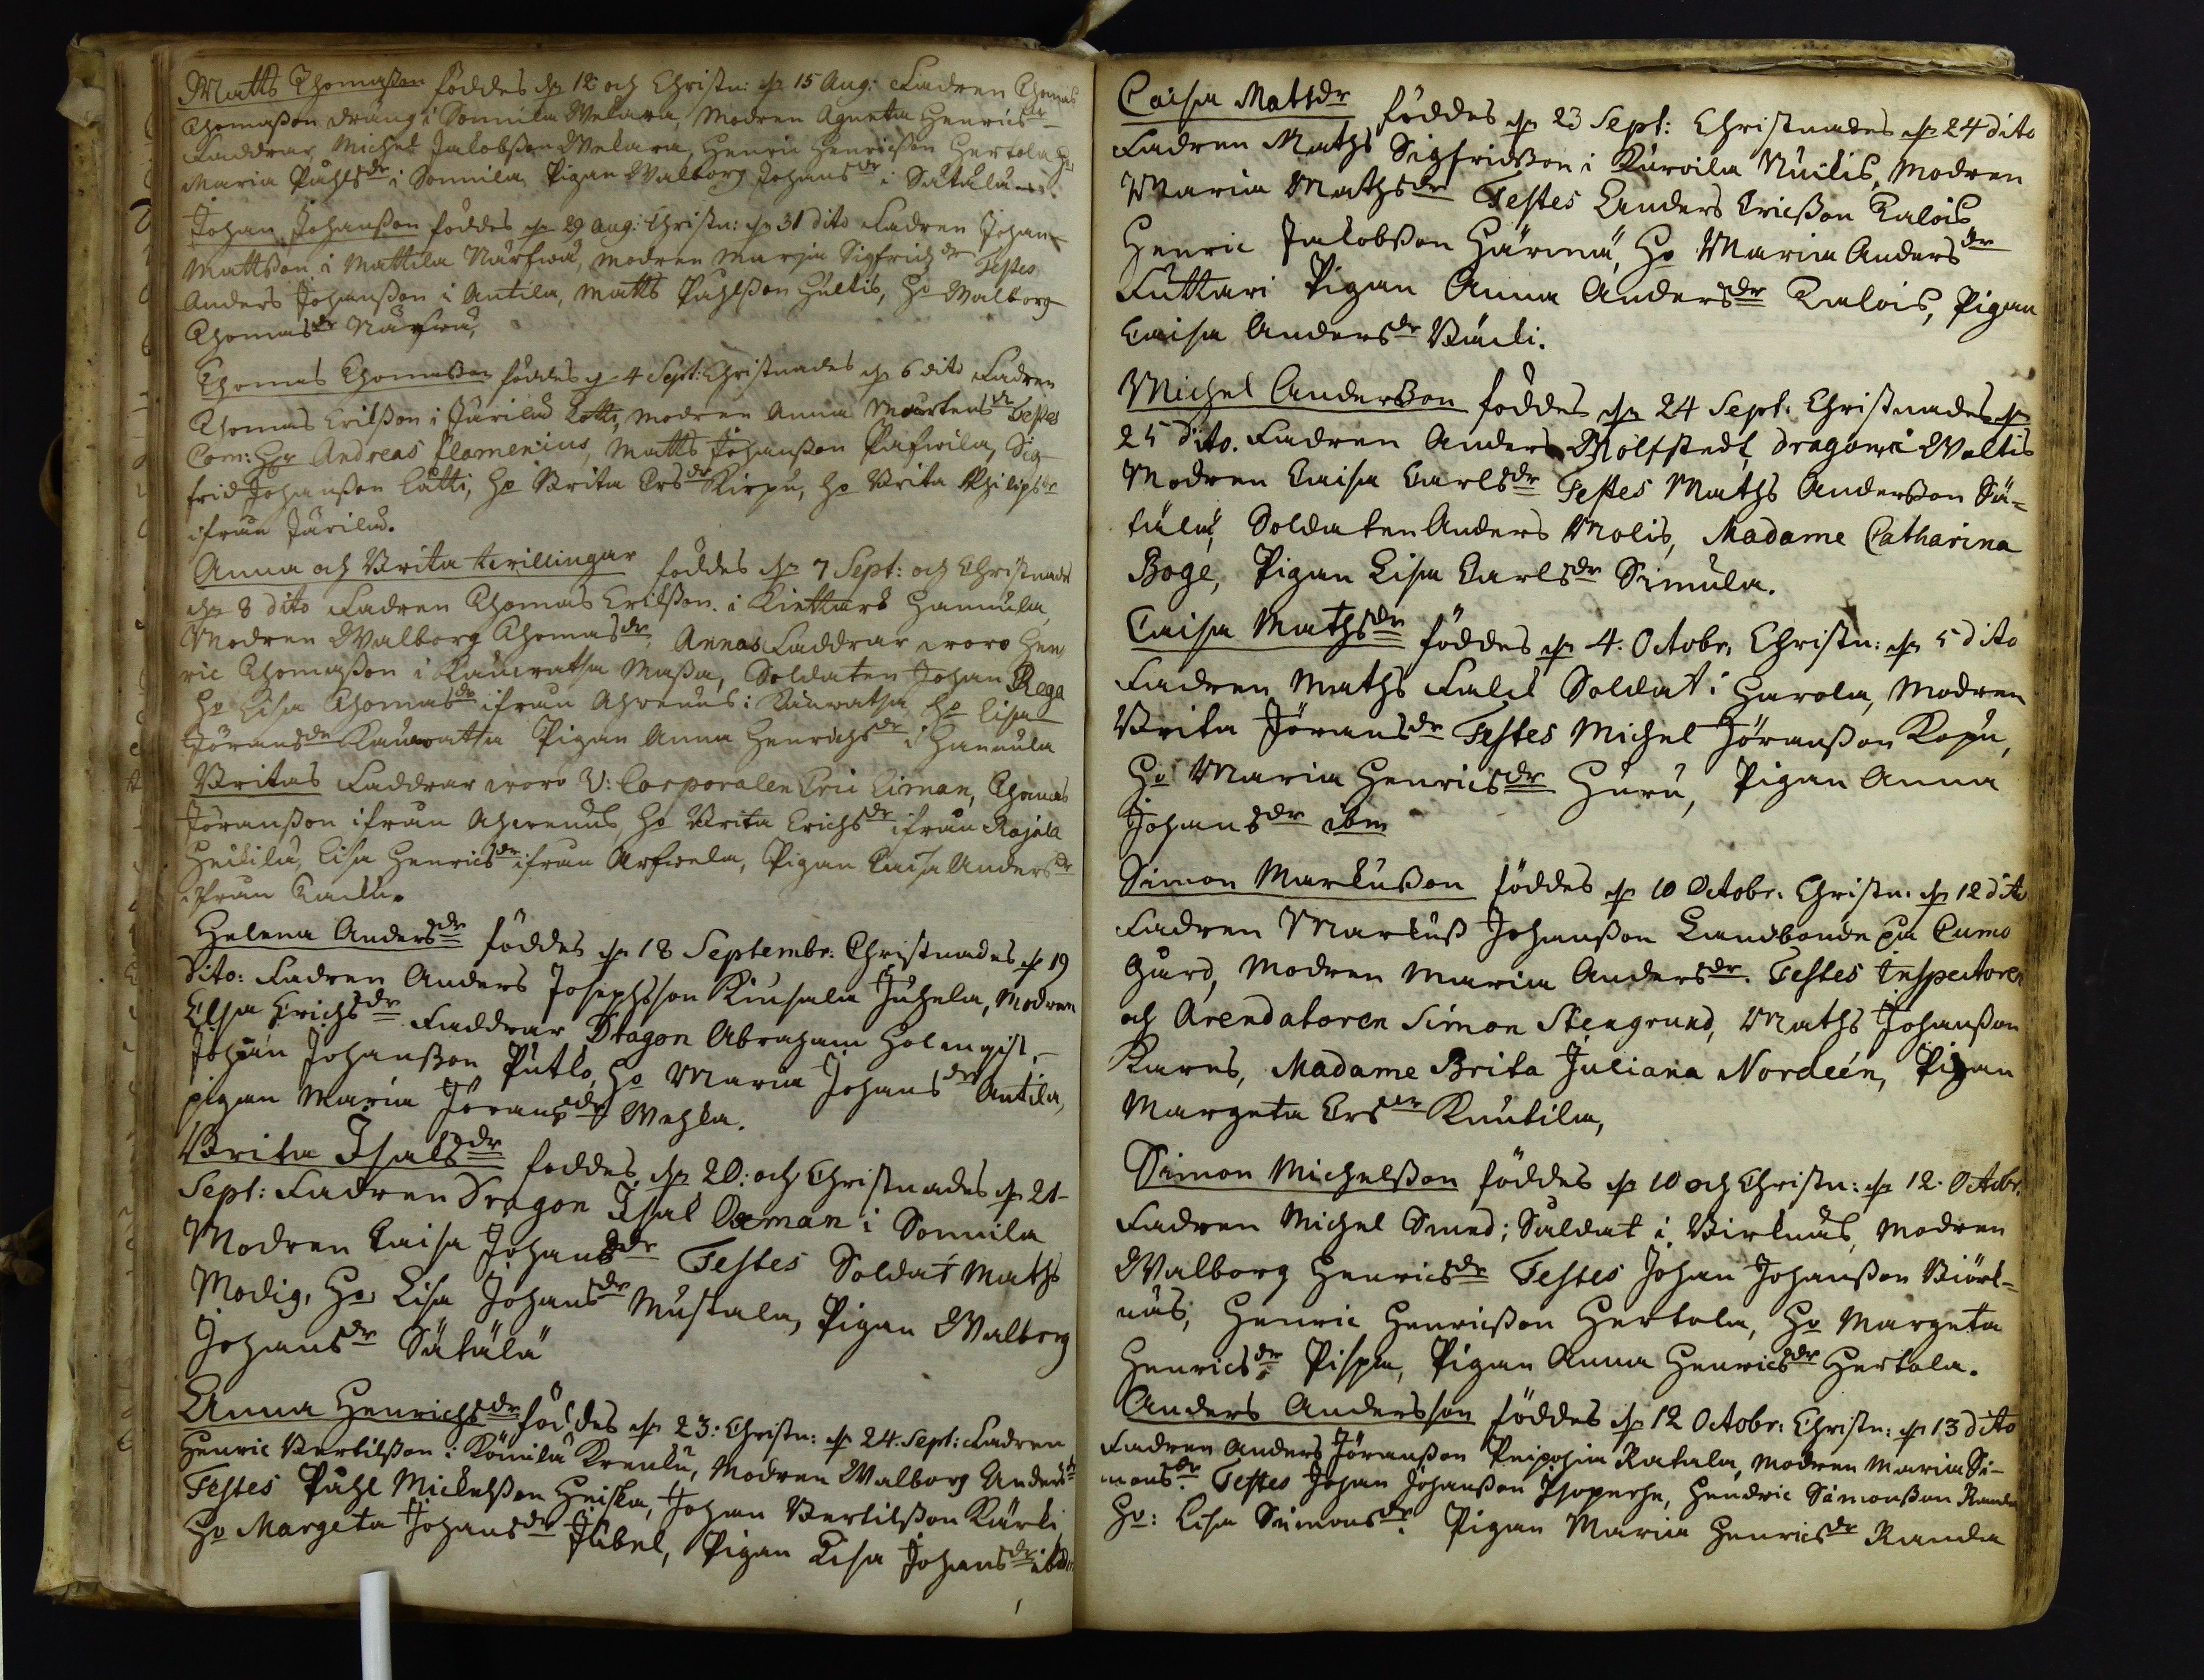 Matts Thomasson föddes d. 12 och Christn: d. 15 Aug: Fadren Thomas
Thomasson dräng i Sonnila Welara, Modren Agneta Henrics dr
Faddrar, Michel Jakobsson Welara, Henric Henricsson Hertola Hu
Maria Påhls dr i Sonnila, Pigan Walborg Johans dr i Sätälä
Johan Johansson föddes d. 29 Aug: Christn: d. 31 dito Fadren Johan
Mattsson i Mattila Närfwä, modren Marja Sigfrids dr Testes
Anders Johansson i Antila, Matts Påhlsson Hultis, Ho Walborg
Thomas dr Närfwä,
Thomas Thomasson föddes d. 4 Sept: Christnades d. 6 dito Fadren
Thomas Eriksson i Järilä Latti, modren Anna Mårtens dr Testes
Com: Hr Andreas Flamenius, Matts Johansson Pafwila, Sig-
frid Johansson Latti, Ho Brita Ers dr Kirpu, Ho Brita Philips dr
ifrån Järilä.
Anna och Brita tvillingar föddes d. 7 Sept: och Christnades
d. 8 dito Fadren Thomas Eriksson i Kiettare Hannula
Modren Walborg Thomas dr, Annas Faddrar woro Hen
ric Thomasson i Kauwatsa Massa, Soldaten Johan Rega
Ho Lisa Thomas dr ifrån Ahwenus i Kauwatsa Ho Lisa
Jörans dr Kauwatsa Pigan Anna Henrichs dr i Hannula
Britas Faddrar woro V: Corporalen Eric Liman, Thomas
Jöransson ifrån Ahwenus, Ho Brita Erichs dr ifrån Rajala
Heikilä, Lisa Henrics dr ifrån Arfwela, Pigan Caisa Anders dr
ifrån
Helena Anders dr föddes d. 18 Septembr: Christnades d. 19
Dito: Fadren Anders Josephsson Kiusala Juhela, Modren
Elsa Erichs dr Faddrar Dragon Abraham Holmqist,
Johan Johansson Putko, Ho Maria Johans dr Antila,
pigan Maria Jörans dr Wehka.
Brita Isaks dr föddes d. 20: och Christnades d. 21
Sept: Fadren Dragon Isak Oxman i Sonnila
Modren Caisa Johans dr Testes Soldat Maths
Modig, Ho Lisa Johans dr Mustala, Pigan Walborg
Johans dr Sätälä
Anna Henrichs dr föddes d. 23: Christn: d. 24. Sept: Fadren
Henric Bertilsson i Kömilä Krenku, Modren Walborg Anders dr
Testes Påhl Mickelsson Heiska, Johan Bertilsson Kärki
Ho Margeta Johans dr Jubel, Pigan Lisa Johans dr ibdm
Caisa Mats dr föddes d. 23 Sept: Christnades d. 24 dito
Fadren Maths Sigfridsson i Kurvila Nuikis, Modren
Maria Maths dr Testes Anders Ericsson Kalois
Henric Jakobsson Härmä, Ho Maria Anders dr
Futtari Pigan Anna Anders dr Kalois, Pigan
Caisa Anders dr Knuti.
Michel Andersson föddes d. 24 Sept: Christnades d.
25 dito. Fadren Anders Rolfstedt, dragon i Waltis
Modren Caisa Carls dr Testes Maths Andersson Sä-
tälä, Soldaten Anders Molis, Madame Catharina
Boge, Pigan Lisa Carls dr Simula.
Caisa Maths dr föddes d. 4. Octobr: Christn: d. 5 dito
Fadren Maths Falck Soldat i Harola, Modren
Brita Jörans dr Testes Michel Jöransson Kopu,
Ho Maria Henrics dr Huru, Pigan Anna
Johans dr ibm
Simon Markusson föddes d. 10 Octobr: Christn: d. 12 dito
Fadren Markuss Johansson Landbonde på Cumo
Gård, Modren Maria Anders dr. Testes Inspectoren
och Arendatoren Simon Stengrund, Maths Johansson
Kares, Madame Brita Juliana Nordeen, Pigan
Margeta Ers dr Knutila,
Simon Michelsson föddes d. 10 och Christn: d. 12. Octobr.
Fadren Michel Smed; Soldat i Birknäs, Modren
Walborg Henrics dr Testes Johan Johansson Biörk-
näs; Henric Henricsson Hertola, Ho Margeta
Henrics dr Pispa, Pigan Anna Henrics dr Hertola.
Anders Andersson föddes d. 12 Octobr: Christn: d. 13 dito
Fadren Anders Jöransson Peipohja Ratala, Modren Maria Si-
mons dr. Testes Johan Johansson Isoperhe, Hendric Simonsson Randa
Ho: Lisa Simons dr. Pigan Maria Henrics dr Randa